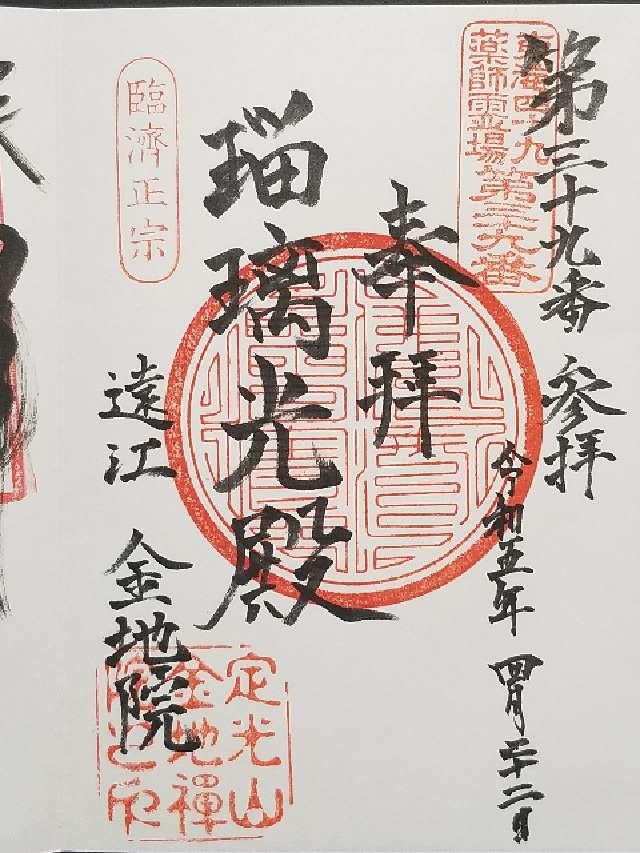 第三十九番 参拝
東海四十九
薬師霊場 第三十九番
令和五年 四月二十二日
奉拝
瑠璃光殿
臨済正宗
遠江 金地院
定光山
金地禅
院之印